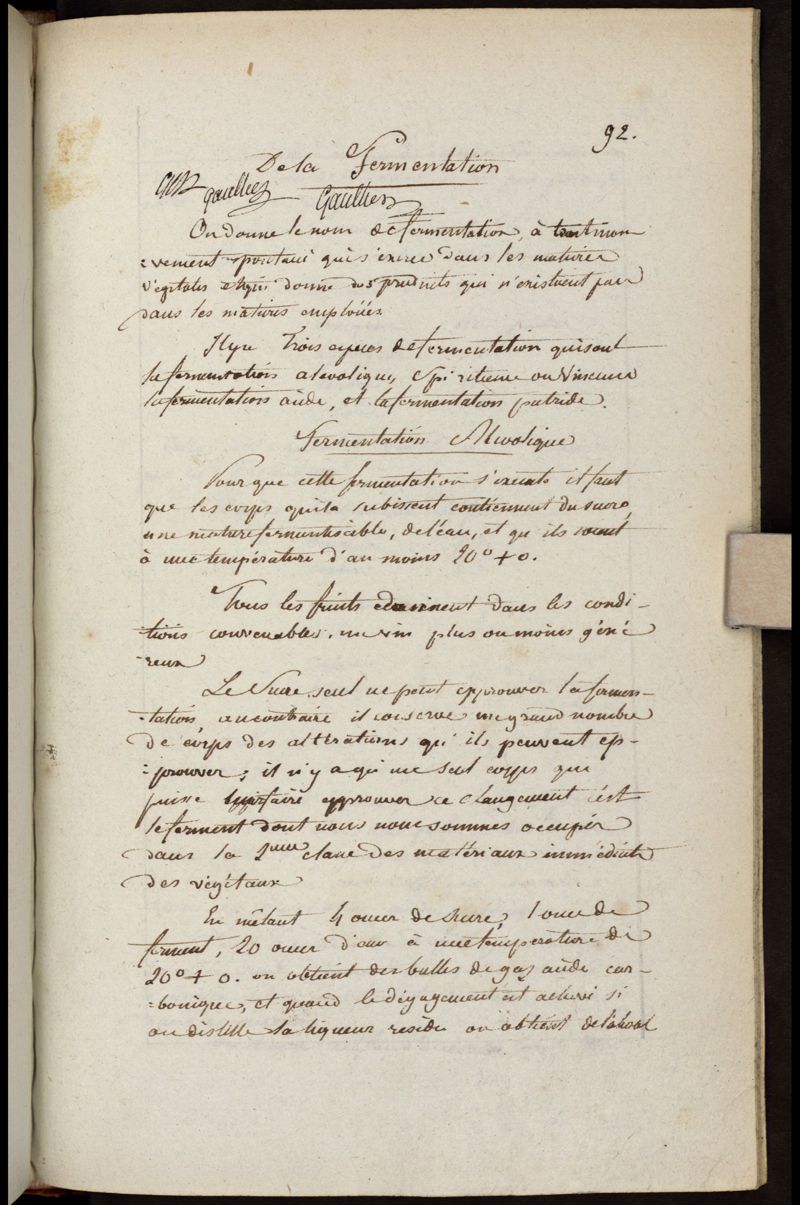 92.
De la Fermentation
Gaultier
Gaultier
On donne le nom de fermentation, à tout mou-
=vement spontané qui s'excite dans les matieres
végétales et qui donne des produits qui n'existoient pas
dans les matieres emploiées
Il y a Trois especes de fermentation qui sont
la fermentation alcoolique, spiritueuse ou vineuse
la fermentation acide, et la fermentation putride.
Fermentation Alcoolique
Pour que cette fermentation s'execute il faut
que les corps qui la subissent contiennent du sucre,
une matiere fermentescible, de l'eau, et qu'ils soient
à une température d'au moins 20° + 0.
Tous les fruits donnent dans les condi-
-tions convenables, un vin plus ou moins géné
-reux
Le Sucre seul ne peut epprouver la fermen-
-tation, au contraire il conserve un grand nombre
de corps des altérations qu'ils peuvent ep-
-prouver; il n'y a qu'un seul corps qui
puisse lui faire epprouver ce changement c'est
le ferment dont nous nous sommes occupés
dans la 2eme classe des matériaux immédiats
des végétaux
En mêlant 4 onces de sucre, 1 once de
ferment, 20 onces d'eau à une température de
20° + 0. on obtient des bulles de gaz acide car-
=bonique, et quand le dégagement est achevé si
on distille la liqueur residu on obtient de l'alcool